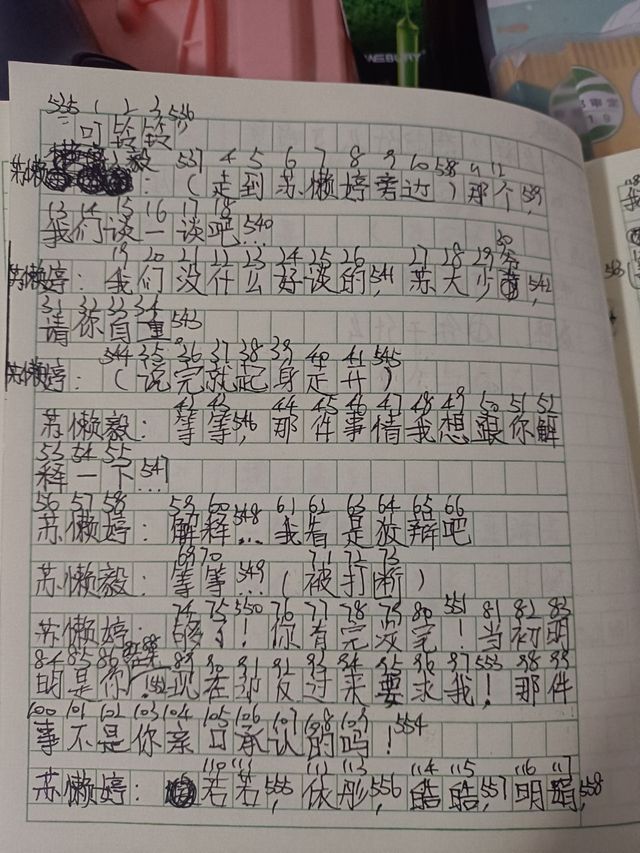 WEBURY
535 1 2 3 536
叮铃铃
苏懒毅 537 4 5 6 7 8 9 10 538 11 12
苏懒毅：（走到苏懒婷旁边）那个，539
13 14 15 16 17 18
我们谈一谈吧…540
19 20 21 22 23 24 25 26 27 28 29 30
苏懒婷：我们没什么好谈的，541 苏大少爷，542
31 32 33 34
请你自重 543
544 35 36 37 38 39 40 41 545
苏懒婷：（说完就起身走开）
42 43 44 45 46 47 48 49 50 51 52
苏懒毅：等等，546 那件事情我想跟你解
53 54 55
释一下…547
56 57 58 59 60 548 61 62 63 64 65 66
苏懒婷：解释…我看是狡辩吧
69 70 71 72 73
苏懒毅：等等…549（被打断）
74 75 550 76 77 78 79 80 551 81 82 83
苏懒婷：够了！你有完没完！当初明
84 85 86 87 88 89 90 91 92 93 94 95 96 97 553 98 99
明是你！552 现在却反过来要求我！那件
100 101 102 103 104 105 106 107 108 109
事不是你亲口承认的吗！554
110 111 112 113 114 115 116 117
苏懒婷：若若，555 依彤，556 皓皓，557 明娟，558